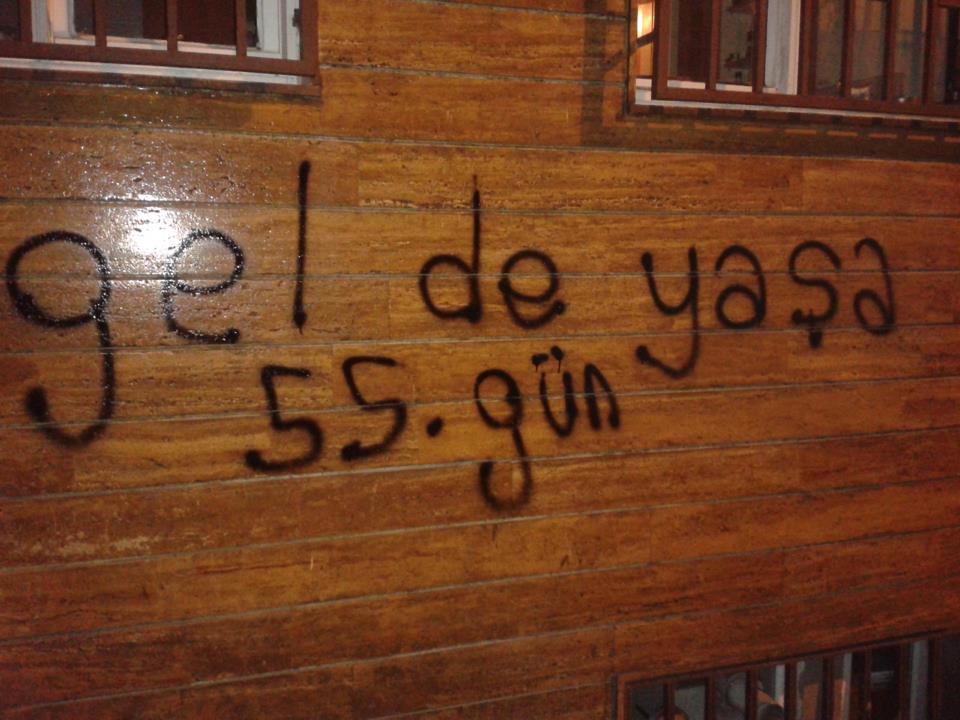 gel de yaşa
55. gün